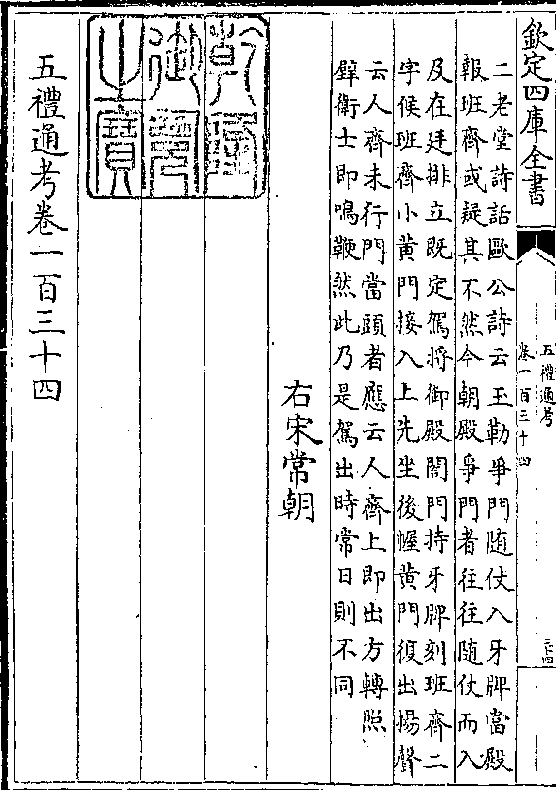 欽定四庫全書
五禮通考
卷一百三十四
三十四
二老堂詩話歐公詩云玉勒爭門隨仗入牙牌當殿
報班齊或疑其不然今朝殿爭門者往往隨仗而入
及在廷排立既定駕將御殿閤門持牙牌刻班齊二
字候班齊小黄門接入上先坐後幄黄門復出揚聲
云人齊未行門當頭者應云人齊上即出方轉照
壁衛士即鳴鞭然此乃是駕出時常日則不同
右宋常朝
乾隆御覽之寶
五禮通考卷一百三十四